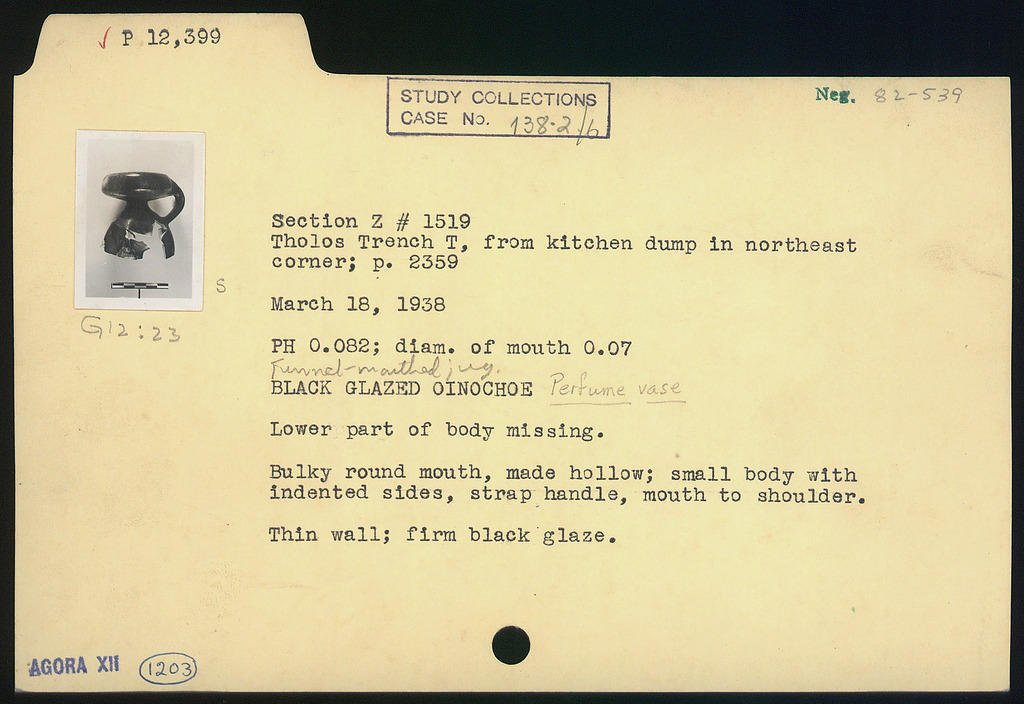 √ P 12,399
STUDY COLLECTIONS
CASE No. 138-2/6
Neg. 82-539
S
G12:23
Section Z # 1519
Tholos Trench T, from kitchen dump in northeast
corner; p. 2359
March 18, 1938
PH 0.082; diam. of mouth 0.07
Funnel-mouthed jug.
BLACK GLAZED OINOCHOE Perfume vase
Lower part of body missing.
Bulky round mouth, made hollow; small body with
indented sides, strap handle, mouth to shoulder.
Thin wall; firm black glaze.
AGORA XII 1203